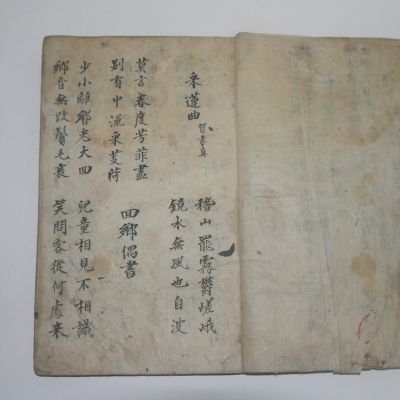 采蓮曲
賀季真
稽山罷霧鬱嵯峨
鏡水無風也自波
莫言春度芳菲盡
別有中流采芰荷
回鄉偶書
少小離鄉老大回
鄉音無改鬢毛衰
兒童相見不相識
笑問客從何處来